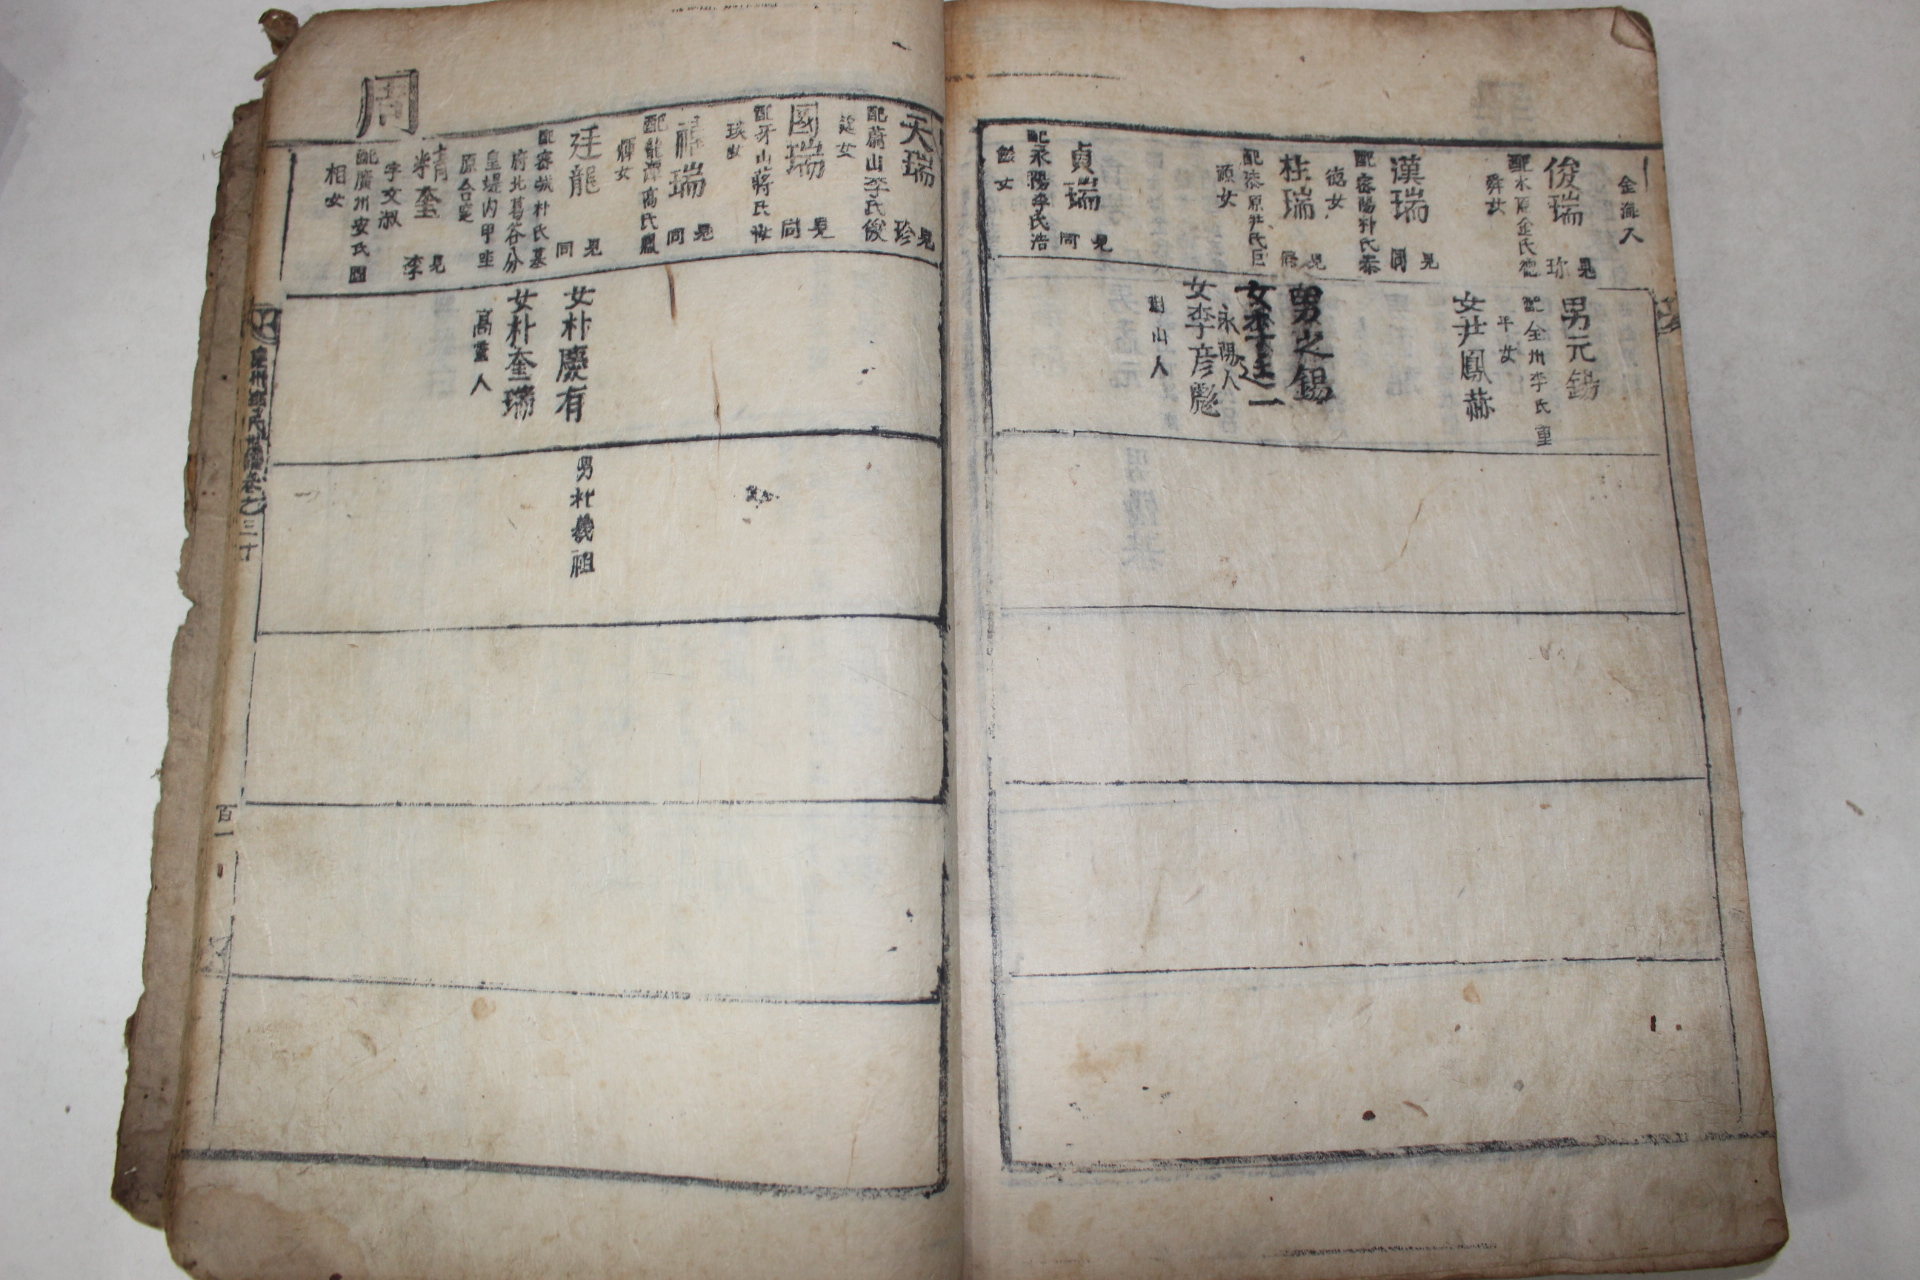 金海人
俊瑞
見
珎
配水原金氏德
舜女
漢瑞
見
同
配密陽朴氏泰
德女
柱瑞
見
配漆原尹氏巨
頭女
貞瑞
見
同
配永陽李氏浩
馥女
男元錫
配全州李氏重
平女
女尹鳳赫
男之錫
永陽人
女李彦彪
人
天瑞
見
珍
配蔚山李氏俊
女
國瑞
見
同
配牙山蔣氏
瑛女
福瑞
見
同
配龍潭高氏鳳
輝女
廷龍
見
同
配密城朴氏墓
府北葛谷分
皇堤内甲坐
原合窆
精奎
見
李
字文淑
配廣州安氏圖
相女
周
女朴慶有
女朴奎瑞
高靈人
男朴義祖
三十
百一